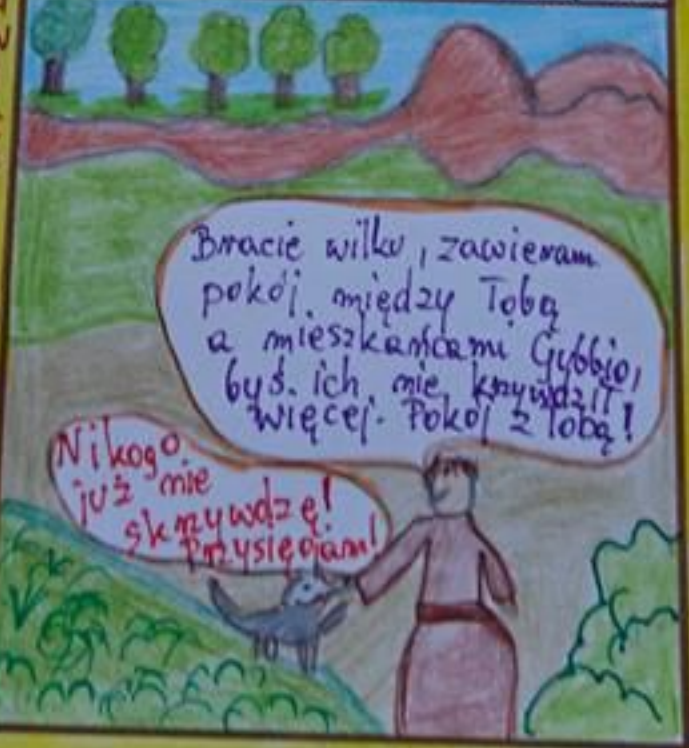 Bracie wilku, zawieram
pokój między Tobą
a mieszkańcami Gubbio,
byś ich nie krzywdził
więcej. Pokój z Tobą!
Nikogo
już nie
skrzywdzę!
Przysięgam!